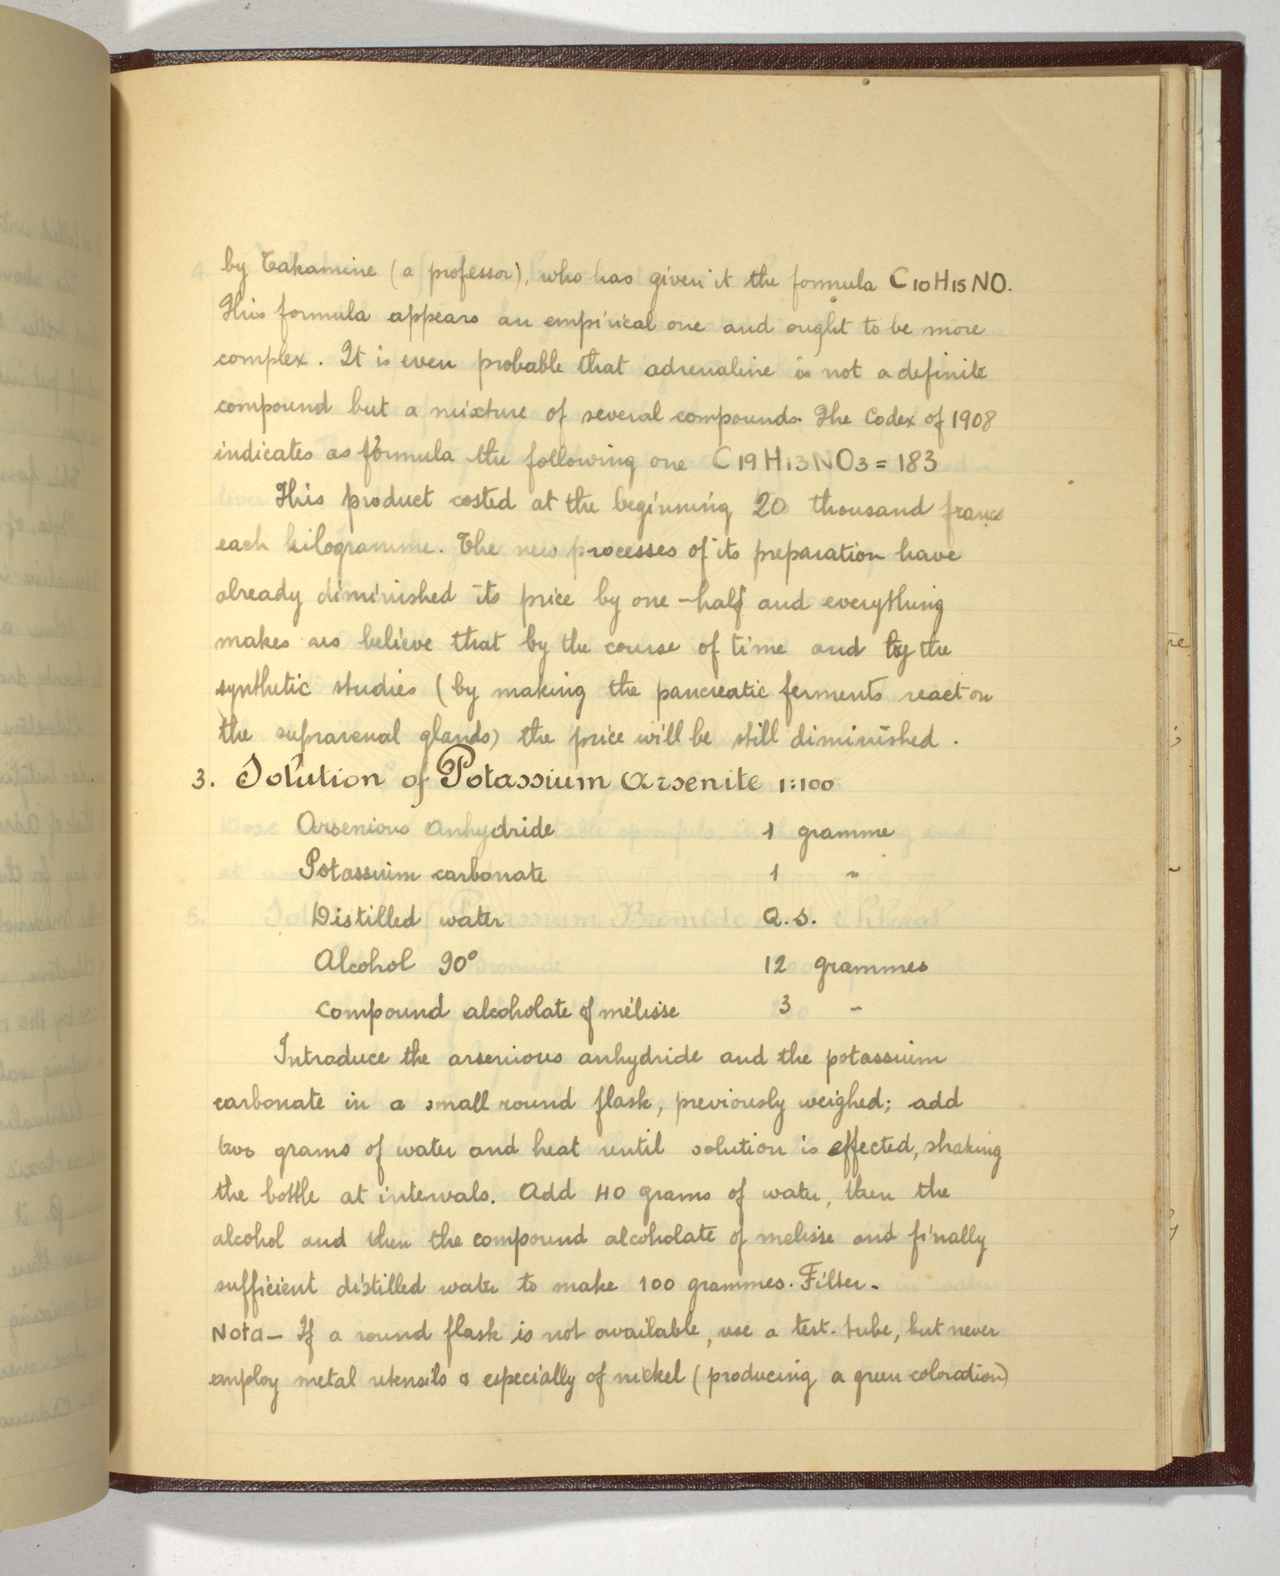 by Takamine (a professor), who has given it the formula C10H15NO.
This formula appears an empirical one and ought to be more
complex. It is even probable that adrenaline is not a definite
compound but a mixture of several compounds. The Codex of 1908
indicates as formula the following one C19H13NO3 = 183
This product costed at the beginning 20 thousand francs
each kilogramme. The new processes of its preparation have
already diminished its price by one-half and everything
makes us believe that by the course of time and by the
synthetic studies (by making the pancreatic ferments react on
the suprarenal glands) the price will be still diminished.
3. Solution of Potassium Arsenite 1:100
Arsenious anhydride 1 gramme
Potassium carbonate 1 "
Distilled water Q.S.
Alcohol 90° 12 grammes
Compound alcoholate of mélisse 3 "
Introduce the arsenious anhydride and the potassium
carbonate in a small round flask, previously weighed; add
two grams of water and heat until solution is effected, shaking
the bottle at intervals. Add 40 grams of water, then the
alcohol and then the compound alcoholate of melisse and finally
sufficient distilled water to make 100 grammes. Filter.
Nota— If a round flask is not available, use a test-tube, but never
employ metal utensils especially of nickel (producing a green coloration)